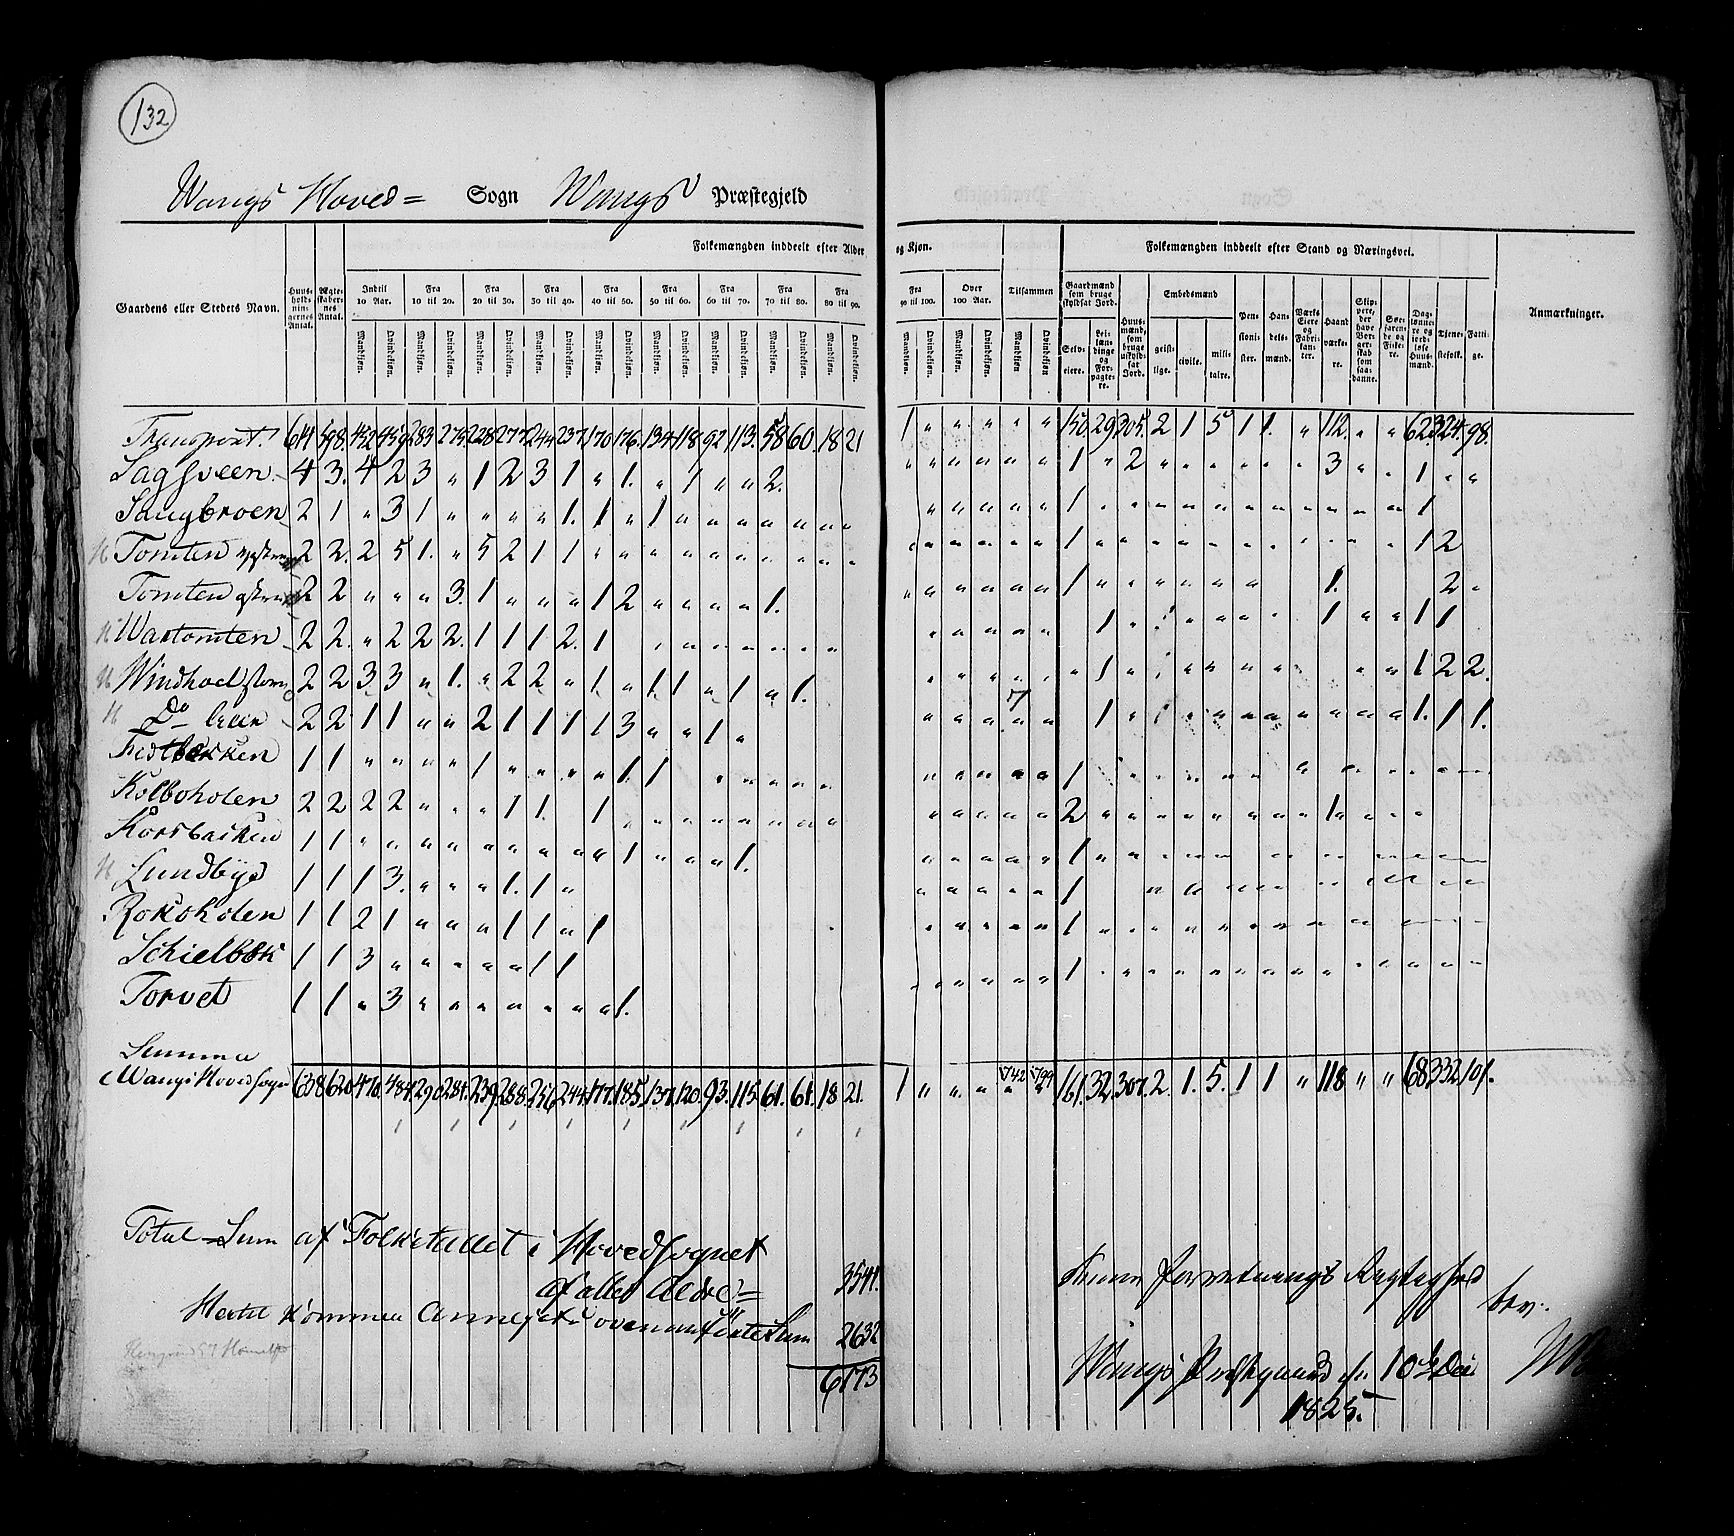 132
Wangs Hoved= Sogn Wangs Præstegjeld
Folkemængden inddeelt efter Alder og Kjøn.
Folkemængden inddeelt efter Stand og Næringsvei.
Gaardens eller Stedets Navn.
Huus-hold-nin-gernes Antal.
Ægte-skaber-nes Antal.
Indtil 10 Aar.
Fra 10 til 20.
Fra 20 til 30.
Fra 30 til 40.
Fra 40 til 50.
Fra 50 til 60.
Fra 60 til 70.
Fra 70 til 80.
Fra 80 til 90.
Fra 90 til 100.
Over 100 Aar.
Tilsammen
Mandkjøn. Qvindekjøn.
Gaardmænd som bruge skyldsat Jord.
Selv-eiere.
Lei-læn-dinge og For-pagte-re.
Huus-mænd, som bruge uskyld-sat Jord.
Embedsmænd
geist-lige. civile. mili-taire.
Pen-sioni-ster.
Han-dels-mænd.
Værks Eiere og Fabri-kan-ter.
Haand værke-re.
Slip-pere, der have Bor-ger-skab som saa-danne.
Søe-faren-de og Fiske-re.
Dag-lønne-re og jord-løse Huus-mænd.
Tjene-stefolk.
Fatti-ge.
Anmærkninger.
Transport. 611 598. 452 459 283 275. 228 277 244 237. 170 176. 134. 118. 92 113. 58 60. 18 21 1 " " " " " 150. 29 305. 2 1 5 1 1. " 112. " " 62 324. 98.
Sagsveen. 4 3. 4 2 3 " 1 2 3 1 " 1. " 1 " " 2. 1 " 2 3 1
Sangbroen 2 1 " 3 1 " " " " 1. 1 " 1 1 1
Tomten 2 2. 2 5 1. " 5 2 1 1 1 1 2
Tomten 2 2 " " " 3. 1 " " " 1 2 " " " " 1. 1 1. 2
Wastomten 2 2. " 2 2 2. 1 1 1 2. 1 1 1 1 1
Windhoel 2 2 3 3 " 1. " 2 2 " 1. " 1. 1 " 1 " 1. 1 1 2 2.
Do 2 2 1 1 " " 2 1 1 1 1 3 " " 1 " 7 1 1. 1 1.
Fedtbakken 1 1 " " " " 1 " " " " 1. 1 1
Kolboholen 2 2 2 2 " " " 1 1. 1 2 1
Korsbacken 1 1 " " " " " " " " " 1 " " " 1. 1
Lundbye 1 1 1 3. " " " 1. 1 " 1
Rokoholen 1 1 2 1 " " " 1 1 " 1 1
Schielbek 1 1 3 " " " " " 1 1 1
Torvet 1 1 " 3 " " " " " " " 1.
Summa
Wangs Hovedsogn 638 620 470. 484. 290 284. 239. 288. 256 244. 177. 185. 137. 120. 93. 115. 61. 61. 18 21. 1 " " " 1742 1799 161. 32. 307. 2. 1. 5. 1 1 " 118 " " 68 332 101.
Total=Sum af Folketallet i Hovedsognet
af alle Aldre= 3541.
Hertil kommer Annexets ovenanførte Sum 2632
6173
Forretnings Rigtighed
bev:
Wangs Præstegaard 10
1825.